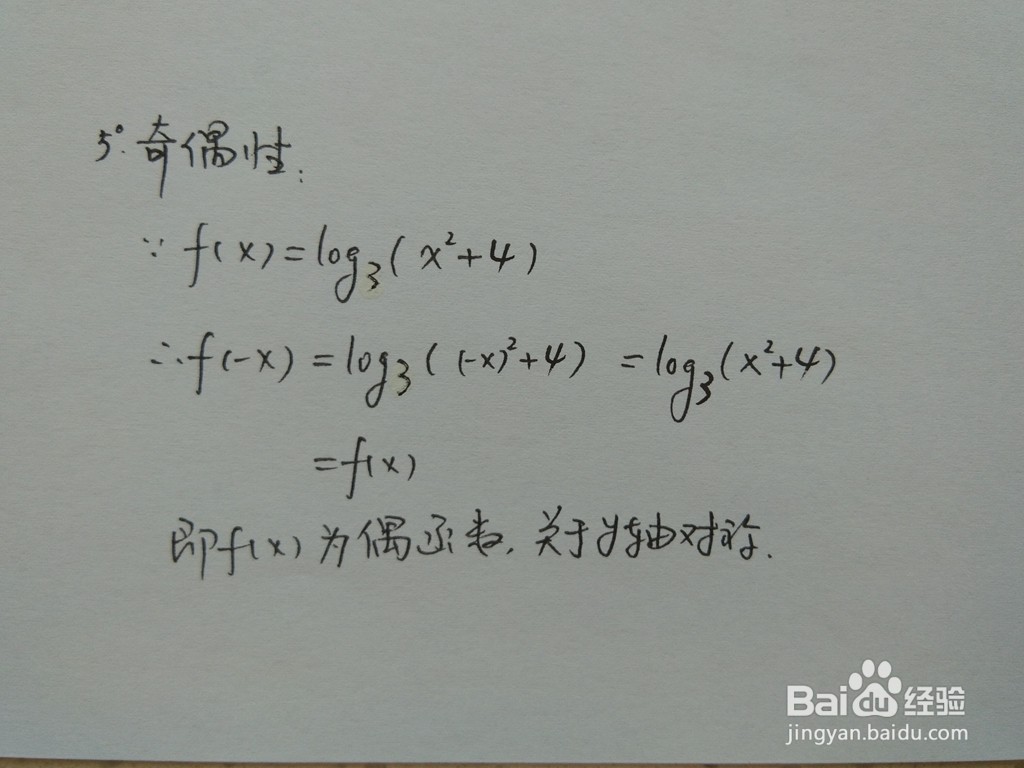 5°. 奇偶性:
∵ f(x)=log₃(x²+4)
∴ f(-x) = log₃((-x)²+4) = log₃(x²+4)
=f(x)
即f(x)为偶函数,关于y轴对称.
Bai du 经验
jingyan.baidu.com